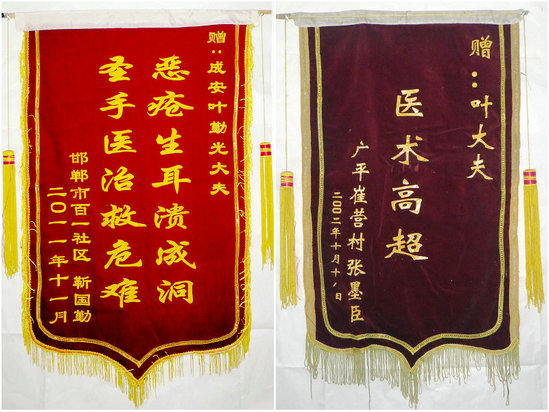 赠:成安叶勤光大夫
恶疮生耳溃成洞
圣手医治救危难
邯郸市百一社区 靳国勤
二〇一一年十一月
赠:叶大夫
医术高超
广平崔营村张墨臣
二〇〇二年十月十八日